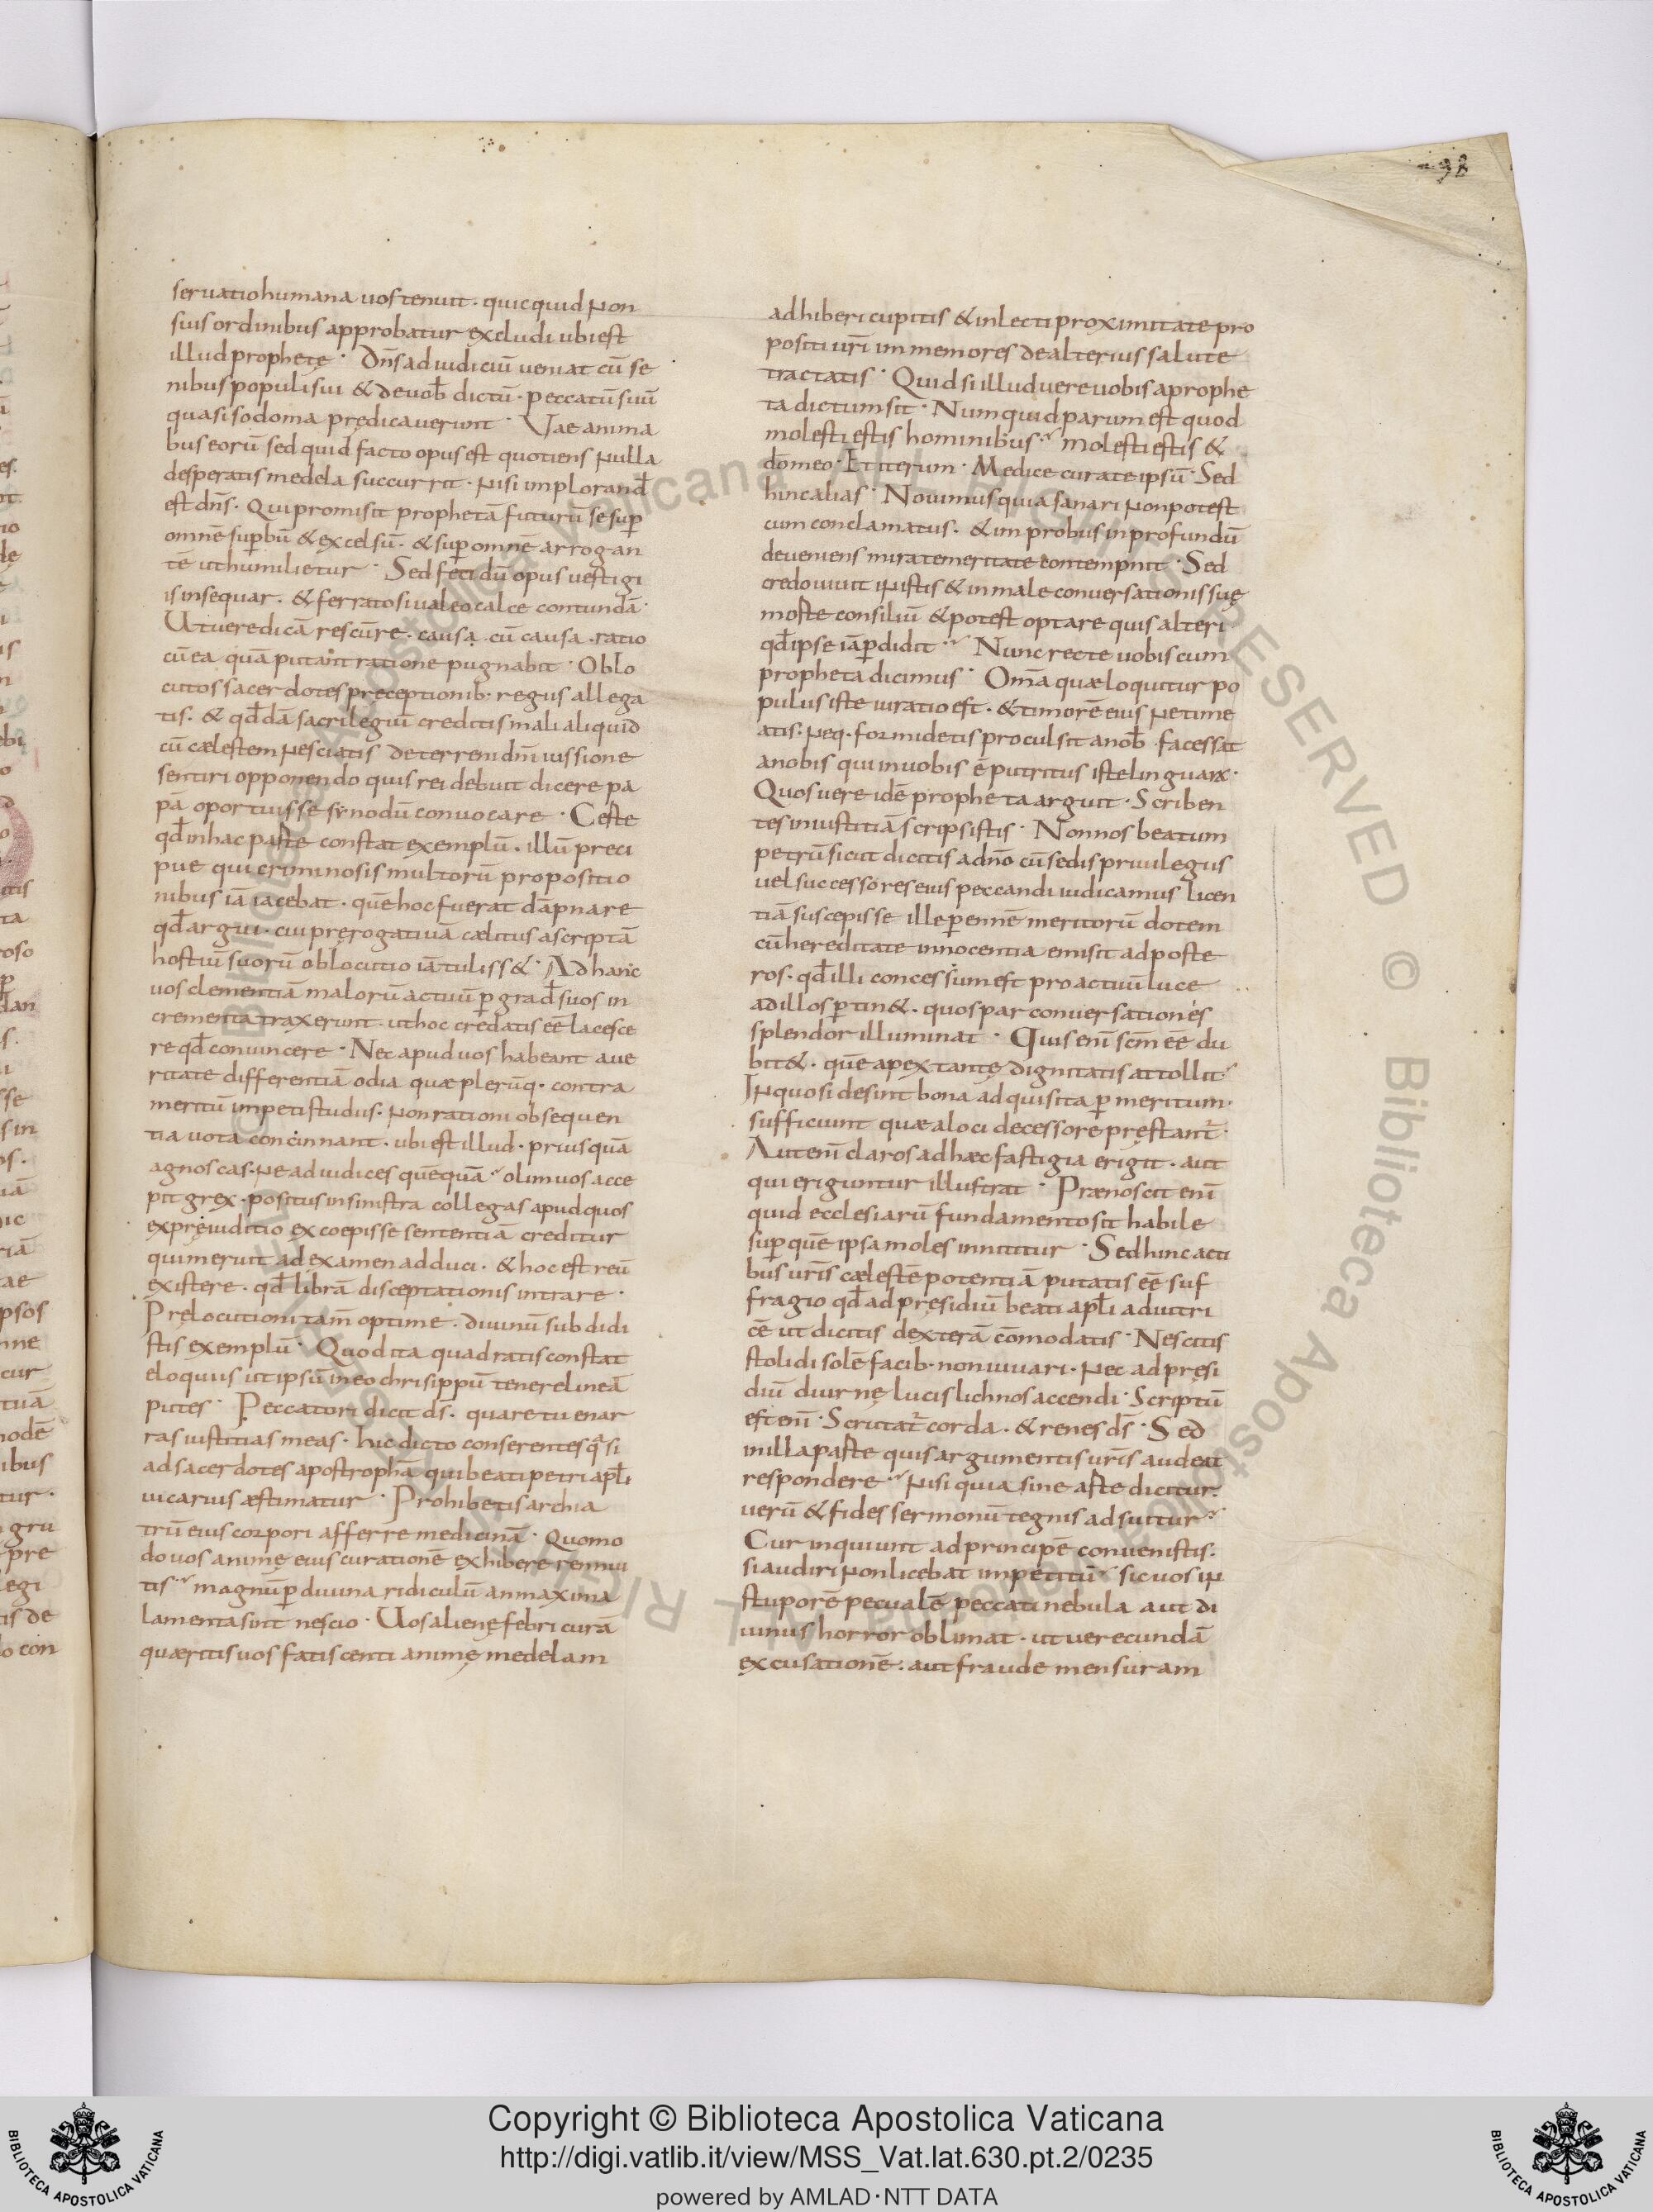 298
seruatio humana uos tenuit · quicquid non
suis ordinibus approbatur excludi ubi est
illud prophetę · Dn̄s ad iudiciū ueniat cū se
nibus populi sui & de uob̄ dictū · peccatū suū
quasi sodoma prędicauerunt · Vae anima
bus eorū sed quid facto opus est quotiens nulla
desperatis medela succurrit · nisi implorand̄
est dn̄s · Qui promisit prophetā futurū se sup̄
omnē sup̄bū & excelsū · & sup̄ omnē arrogan
tē ut humilietur · Sed feti dū opus uestigi
is insequar · & ferrato si ualeo calce contundā ·
Ut uere dicā res cū re · causa cū causa · ratio
cū ea quā putant ratione pugnabit · Oblo
cutos sacerdotes preceptionib · regiis allega
tis · & qd̄dā sacrilegiū creditis mali aliquid
cū cælestem nesciatis de terreni dn̄i iussione
sentiri opponendo quis rei debuit dicere pa
pā oportuisse synodū conuocare · Certe
qd̄ in hac parte constat exemplū · illū preci
pue qui criminosis multorū propositio
nibus iā iacebat · quē hoc fuerat dāpnare
qd̄ argui · cui pręrogatiua cælitus ascriptā
hostiū suorū oblocutio iā tuliss& · Ad hanc
uos clementiā malorū actuū p̄ grad̄ suos in
crementa traxerunt · ut hoc credatis eē lacesce
re qd̄ conuincere · Nec apud uos habeant a ue
ritate differentiā odia quæ plerūq · contra
meritū impetis tudus · non rationi obsequen
tia uota concinnant · ubi est illud · priusquā
agnoscas · ne adiudices quēquā · olim uos acce
pit grex · positus in sinistra collegas apud quos
ex pręiuditio excoepisse sententiā creditur
qui meruit ad examen adduci · & hoc est reū
existere · qd̄ librā disceptationis intrare ·
Prelocutioni tam̄ optime · diuinū subdidi
stis exemplū · Quod ita quadratis constat
eloquiis ut ipsū in eo chrisippū tenere lineā
putes · Peccatori dicit ds̄ · quare tu enar
ras iustitias meas · hic dicto conserentes q̄si
ad sacerdotes apostrophā qui beati petri apl̄i
uicarius æstimatur · Prohibetis archia
trū eius corpori afferre medicinā · Quomo
do uos animę eius curationē exhibere rennui
tis · magnūp̄ diuina ridiculū an maxima
lamenta sint nescio · Uos alienę febri curā
quæritis uos fatiscenti animę medelam
adhiberi cupitis & in lecti proximitate pro
positi ur̄i immemores de alterius salute
tractatis · Quid si illud uere uobis a prophe
ta dictum sit · Numquid parum est quod
molesti estis hominibus · molesti estis &
dō meo · Et iterum · Medice cura te ipsū · Sed
hinc alias · Nouimus quia sanari non potest
cum conclamatus · & improbus in profundū
deueniens mira temeritate contempnit · Sed
credo uiuit in istis & in male conuersationis suę
morte consiliū & potest optare quis alteri
qd̄ ipse iā p̄didit · Nunc recte uobis cum
propheta dicimus · Omā quæ loquitur po
pulus iste iuratio est · & timorē eius ne time
atis · neq · formidetis procul sit a nob̄ · facessat
a nobis qui in uobis ē putritus iste linguarx ·
Quos uere idē propheta arguit · Scriben
tes iniustitiā scripsistis · Non nos beatum
petrū sicut dicitis a dn̄o cū sedis priuilegiis
uel successores eius peccandi iudicamus licen
tiā suscepisse ille p̄ennē meritorū dotem
cū hereditate innocentia emisit ad poste
ros · qd̄ illi concessum est pro actuū luce
ad illos p̄tin& · quos par conuersationis
splendor illuminat · Quis enī scm̄ eē du
bit& · quē apex tantę dignitatis attollit
In quo si desint bona adquisita p̄ meritum ·
sufficiunt quæ a loci decessore pręstant̄ ·
Aut enī claros ad hæc fastigia erigit · aut
qui eriguntur illustrat · Prænoscit enī
quid ecclesiarū fundamento sit habile
sup̄ quē ipsa moles innititur · Sed hinc acti
bus ur̄is cælestē potentiā putatis eē suf
fragio qd̄ ad pręsidiū beati apl̄i adiutri
cē ut dicitis dexterā cōmodatis · Nescitis
stolidi solē facib · non iuuari · nec ad pręsi
diū diurnę lucis lichnos accendi · Scriptū
est enī · Scrutat̄ corda · & renes ds̄ · Sed
in illa parte quis argumentis ur̄is audeat
respondere · nisi quia sine arte dicitur ·
uerū & fides sermonū tegnis adsuitur
Cur inquiunt ad principē conuenistis ·
si audiri non licebat impetitū · sic uos in
stuporē pecualē peccati nebula aut di
uinus horror oblimat · ut uerecundā
excusationē · aut fraude mensuram
Copyright © Biblioteca Apostolica Vaticana
http://digi.vatlib.it/view/MSS_Vat.lat.630.pt.2/0235
powered by AMLAD·NTT DATA
BIBLIOTECA APOSTOLICA VATICANA
BIBLIOTECA APOSTOLICA VATICANA